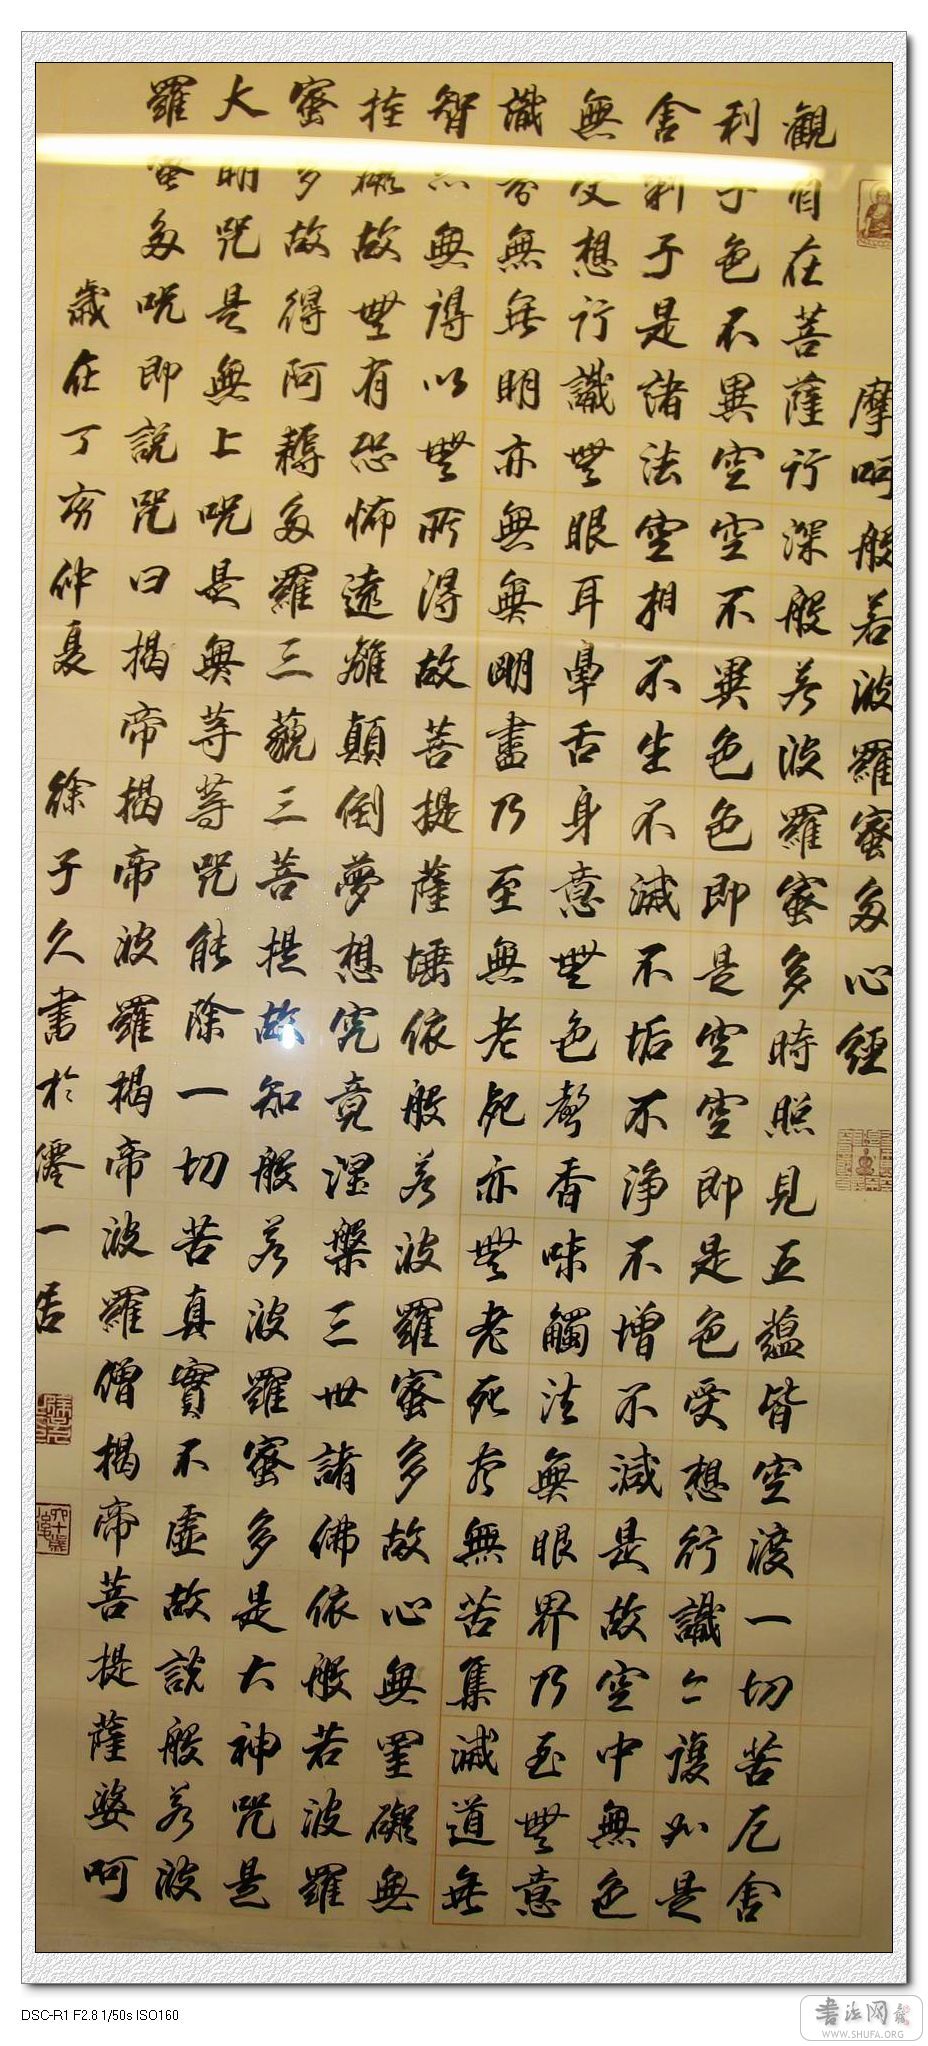 摩呵般若波羅蜜多心經
觀自在菩薩行深般若波羅蜜多時照見五蘊皆空渡一切苦厄舍
利子色不異空空不異色色即是空空即是色受想行識亦復如是
舍利子是諸法空相不生不滅不垢不淨不增不減是故空中無色
無受想行識無眼耳鼻舌身意無色聲香味觸法無眼界乃至無意
識界無無明亦無無明盡乃至無老死亦無老死盡無苦集滅道無
智亦無得以無所得故菩提薩埵依般若波羅蜜多故心無罣礙無
挂礙故無有恐怖遠離顛倒夢想究竟涅槃三世諸佛依般若波羅
蜜多故得阿耨多羅三藐三菩提故知般若波羅蜜多是大神咒是
大明咒是無上呪是無等等咒能除一切苦真實不虛故說般若波
羅蜜多呪即說咒曰揭帝揭帝波羅揭帝波羅僧揭帝菩提薩婆呵
歲在丁亥仲夏 徐子久書於僊一居
DSC-R1 F2.8 1/50s ISO160
书法网
WWW.SHUFA.ORG